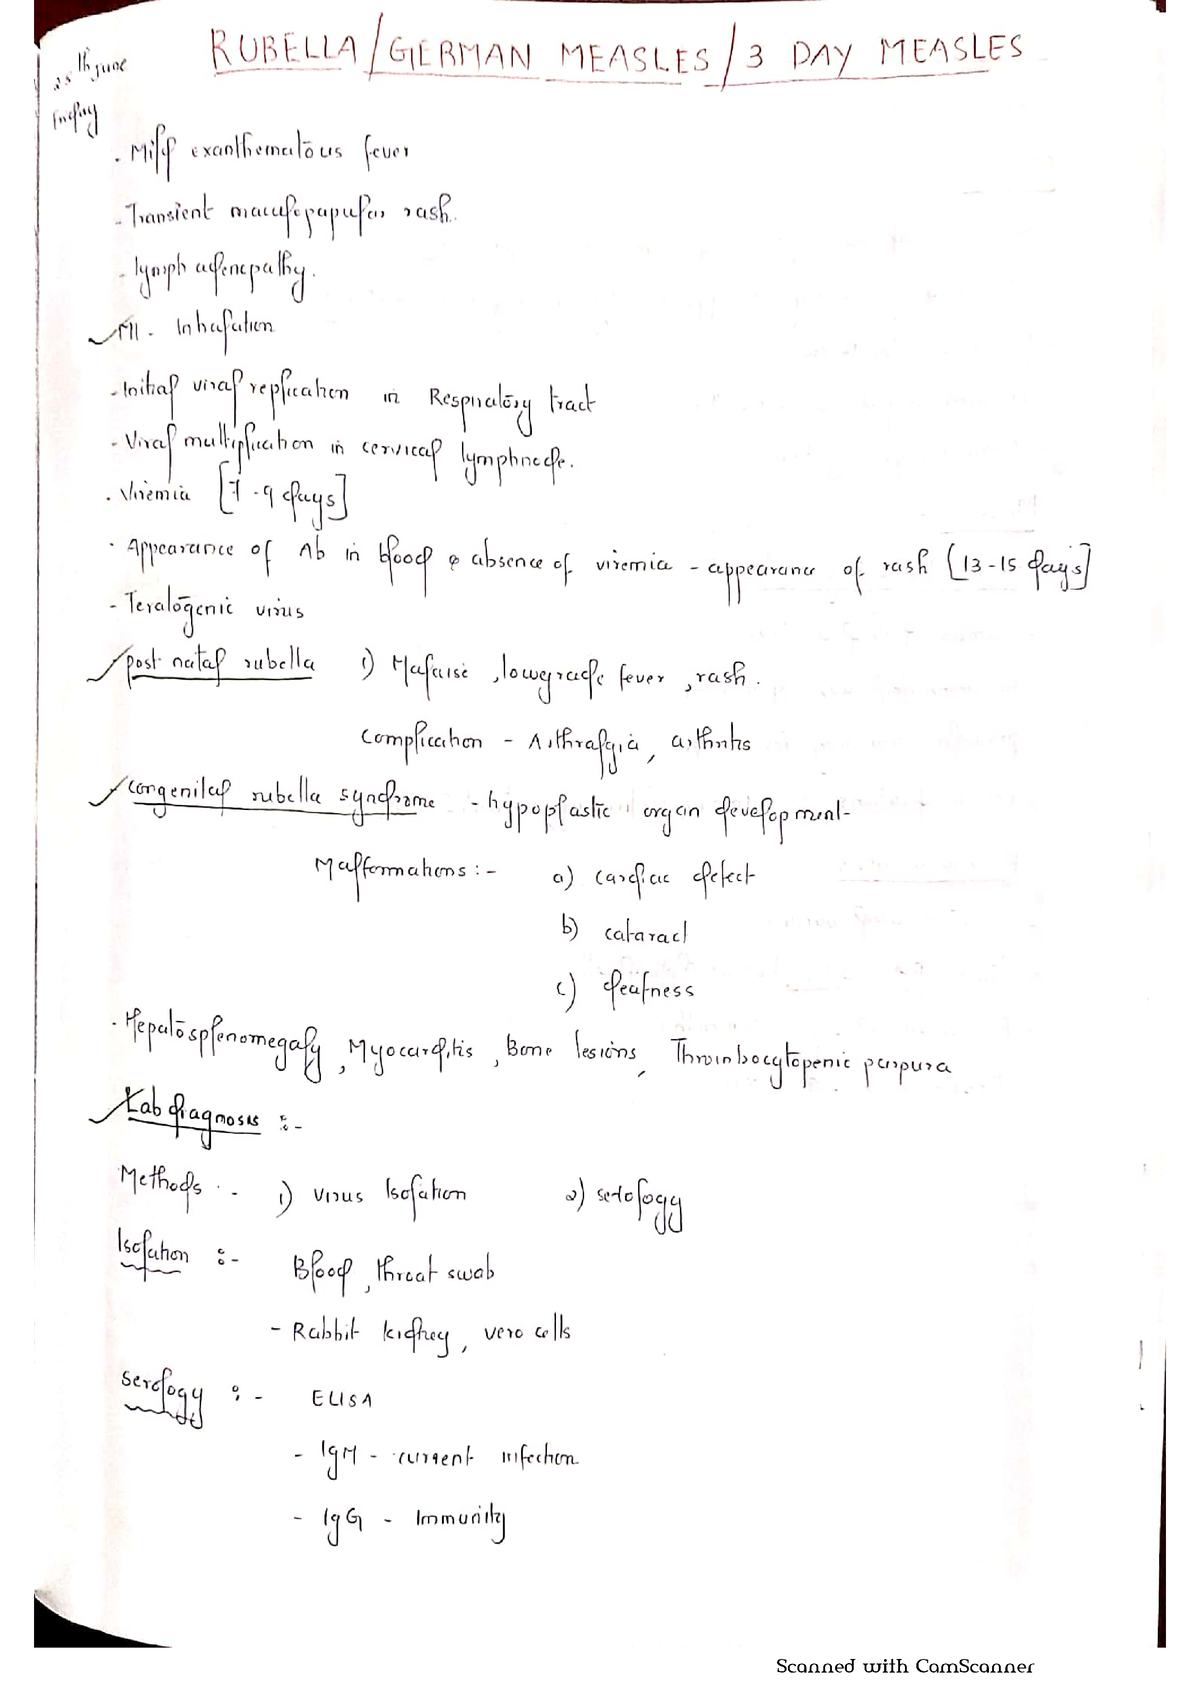 RUBELLA/GERMAN MEASLES/3 DAY MEASLES
25th June
Friday
. Mild exanthematous fever
- Transient maculopapular rash.
- lymph adenopathy.
MI - Inhalation
- Initial viral replication in Respiratory tract
- Viral multiplication in cervical lymphnode.
. Viremia [7-9 days]
. Appearance of Ab in blood & absence of viremia - appearance of rash [13-15 days]
- Teratogenic virus
post natal rubella 1) Malaise, lowgrade fever, rash.
Complication - Arthralgia, arthritis
congenital rubella syndrome - hypoplastic organ development
Malformations :- a) cardiac defect
b) cataract
c) deafness
. Hepatosplenomegaly, Myocarditis, Bone lesions, Thrombocytopenic purpura
Lab diagnosis :-
Methods - 1) virus Isolation 2) serology
Isolation :- Blood, throat swab
- Rabbit kidney, vero cells
Serology :- ELISA
- IgM - current infection
- IgG - Immunity
Scanned with CamScanner